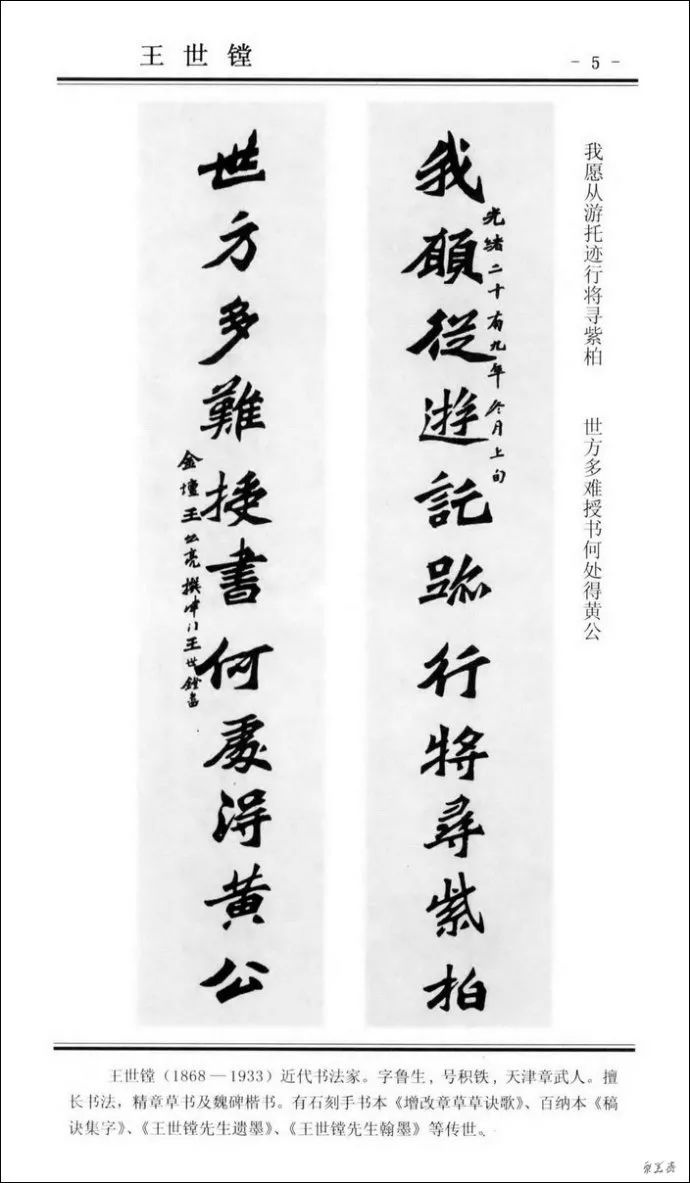 王世镗
- 5 -
我愿从游托迹行将寻紫柏 世方多难授书何处得黄公
我願從遊託跡行將尋紫柏
光緒二十有九年冬月上旬
世方多難授書何處得黄公
金壇王 亮撰津门王世鏜書
王世镗（1868—1933）近代书法家。字鲁生，号积铁，天津章武人。擅
长书法，精章草书及魏碑楷书。有石刻手书本《增改章草草诀歌》、百纳本《稿
诀集字》、《王世镗先生遗墨》、《王世镗先生翰墨》等传世。